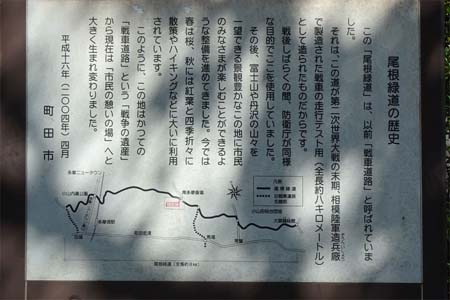 尾根緑道の歴史
この「尾根緑道」は、以前「戦車道路」と呼ばれていま
した。
それは、この道が第二次世界大戦の末期、相模陸軍造兵廠
で製造された戦車の走行テスト用(全長約八キロメートル)
として造られたものだからです。
戦後しばらくの間、防衛庁が同様
な目的でここを使用していました。
その後、富士山や丹沢の山々を
一望できる景観豊かなこの地に市民
のみなさまが楽しむことができるよ
うな整備を進めてきました。今では
春は桜、秋には紅葉と四季折々に
散策やハイキングなどに大いに利用
されています。
このように、この地はかつての
「戦車道路」という「戦争の遺産」
から現在は「市民の憩いの場」へと
大きく生まれ変わりました。
平成十六年(二〇〇四年)四月
町田市
多摩ニュータウン
小山内裏公園
凡例
尾根緑道